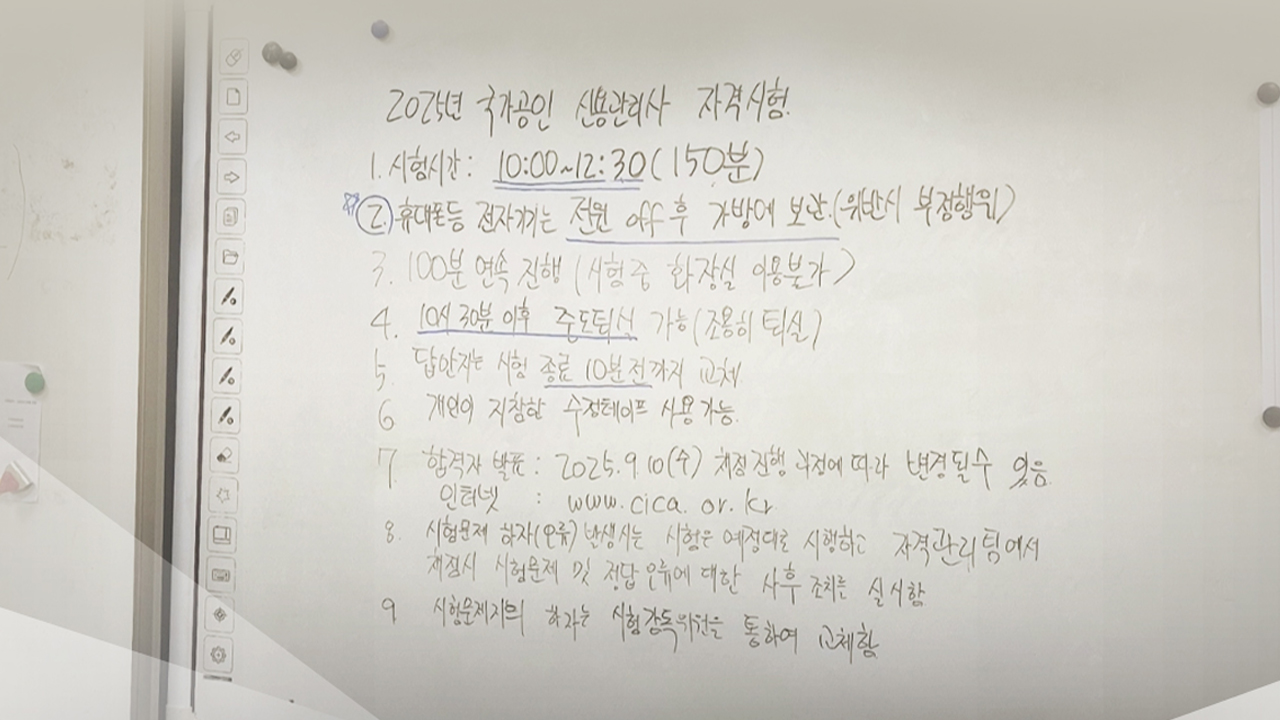 2025년 국가공인 신용관리사 자격시험.
1. 시험시간: 10:00~12:30(150분)
☆②. 휴대폰등 전자기기는 전원 off 후 가방에 보관.(위반시 부정행위)
3. 100분 연속 진행 (시험중 화장실 이용불가)
4. 10시 30분 이후 중도퇴실 가능(조용히 퇴실)
5. 답안지는 시험 종료 10분전까지 교체
6 개인이 지참한 수정테이프 사용가능.
7 합격자 발표 : 2025.9.10(수) 채점진행 과정에 따라 변경될수 있음
인터넷 : www.cica.or.kr
8. 시험문제 하자(오류)발생시는 시험은 예정대로 시행하고 자격관리팀에서
채점시 시험문제 및 정답오류에 대한 사후조치를 실시함
9 시험문제지의 하자는 시험감독위원을 통하여 교체함